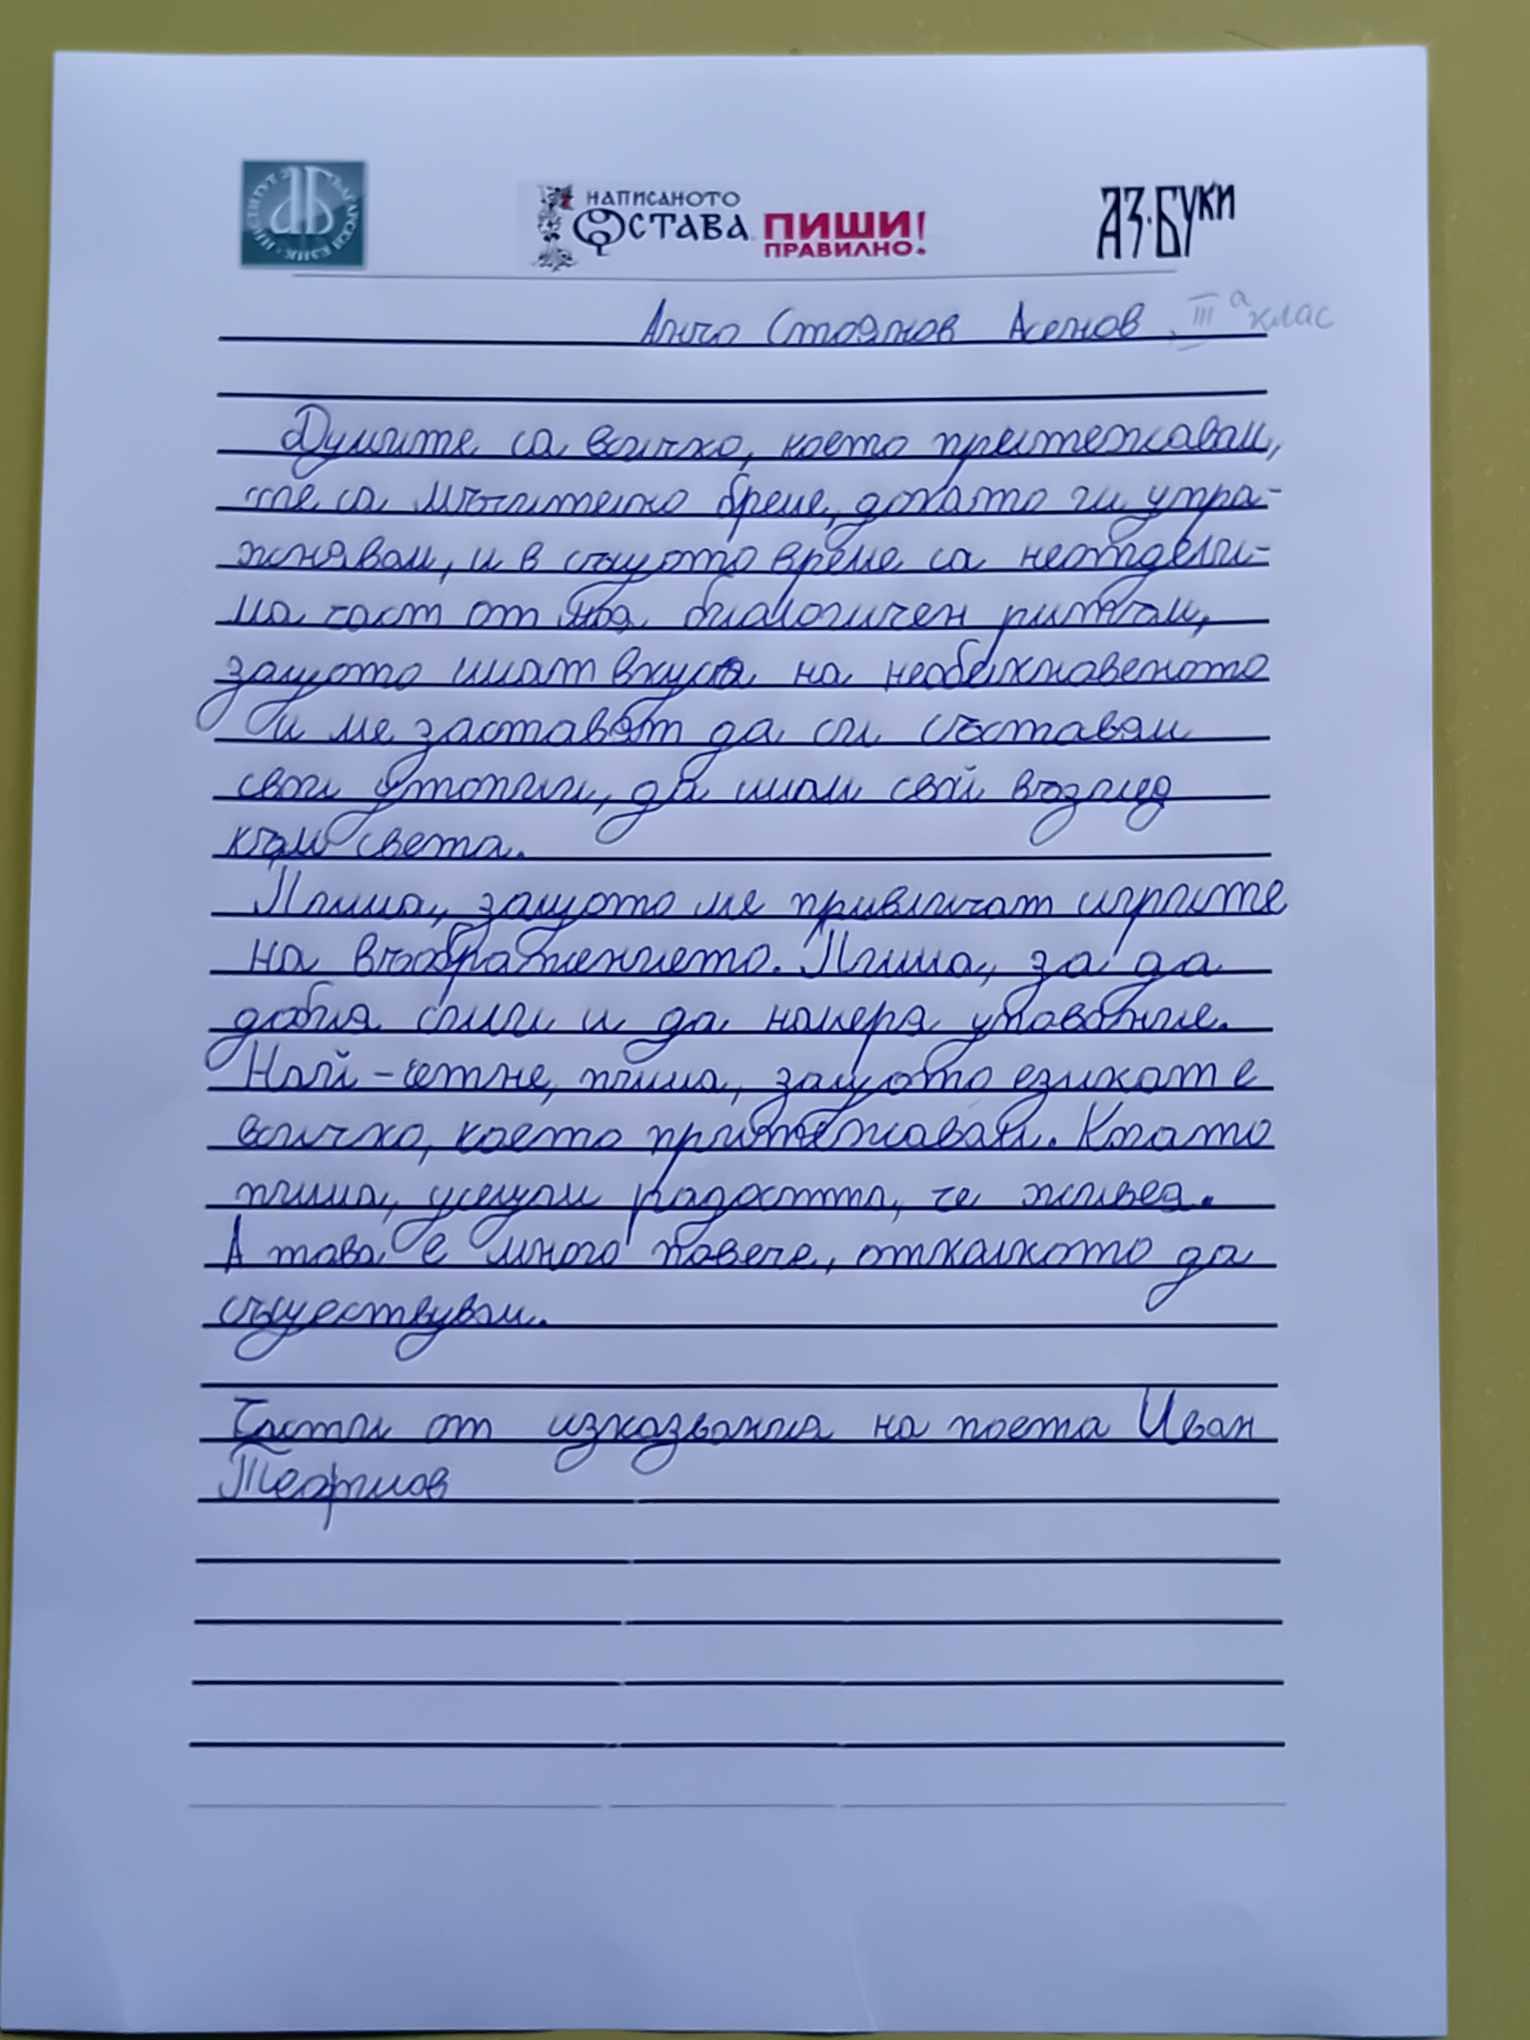 ИНСТИТУТ ЗА БЪЛГАРСКИ ЕЗИК
НАПИСАНОТО
ОСТАВА
ПИШИ!
ПРАВИЛНО!
АЗ·БУКИ
Анчо Стоянов Асенов, III а клас
Думите са всичко, което притежавам,
те са мъчително бреме, докато ги упра-
жнявам, и в същото време са неотдели-
ма част от моя биологичен ритъм,
защото имат вкуса на необикновеното
и ме заставят да си съставям
свои утопии, да имам свой възглед
към света.
Пиша, защото ме привличат игрите
на въображението. Пиша, за да
добия сили и да намеря упование.
Най-сетне, пиша, защото езикът е
всичко, което притежавам. Когато
пиша, усещам радостта, че живея.
А това е много повече, отколкото да
съществувам.
Части от изказвания на поета Иван
Теофилов